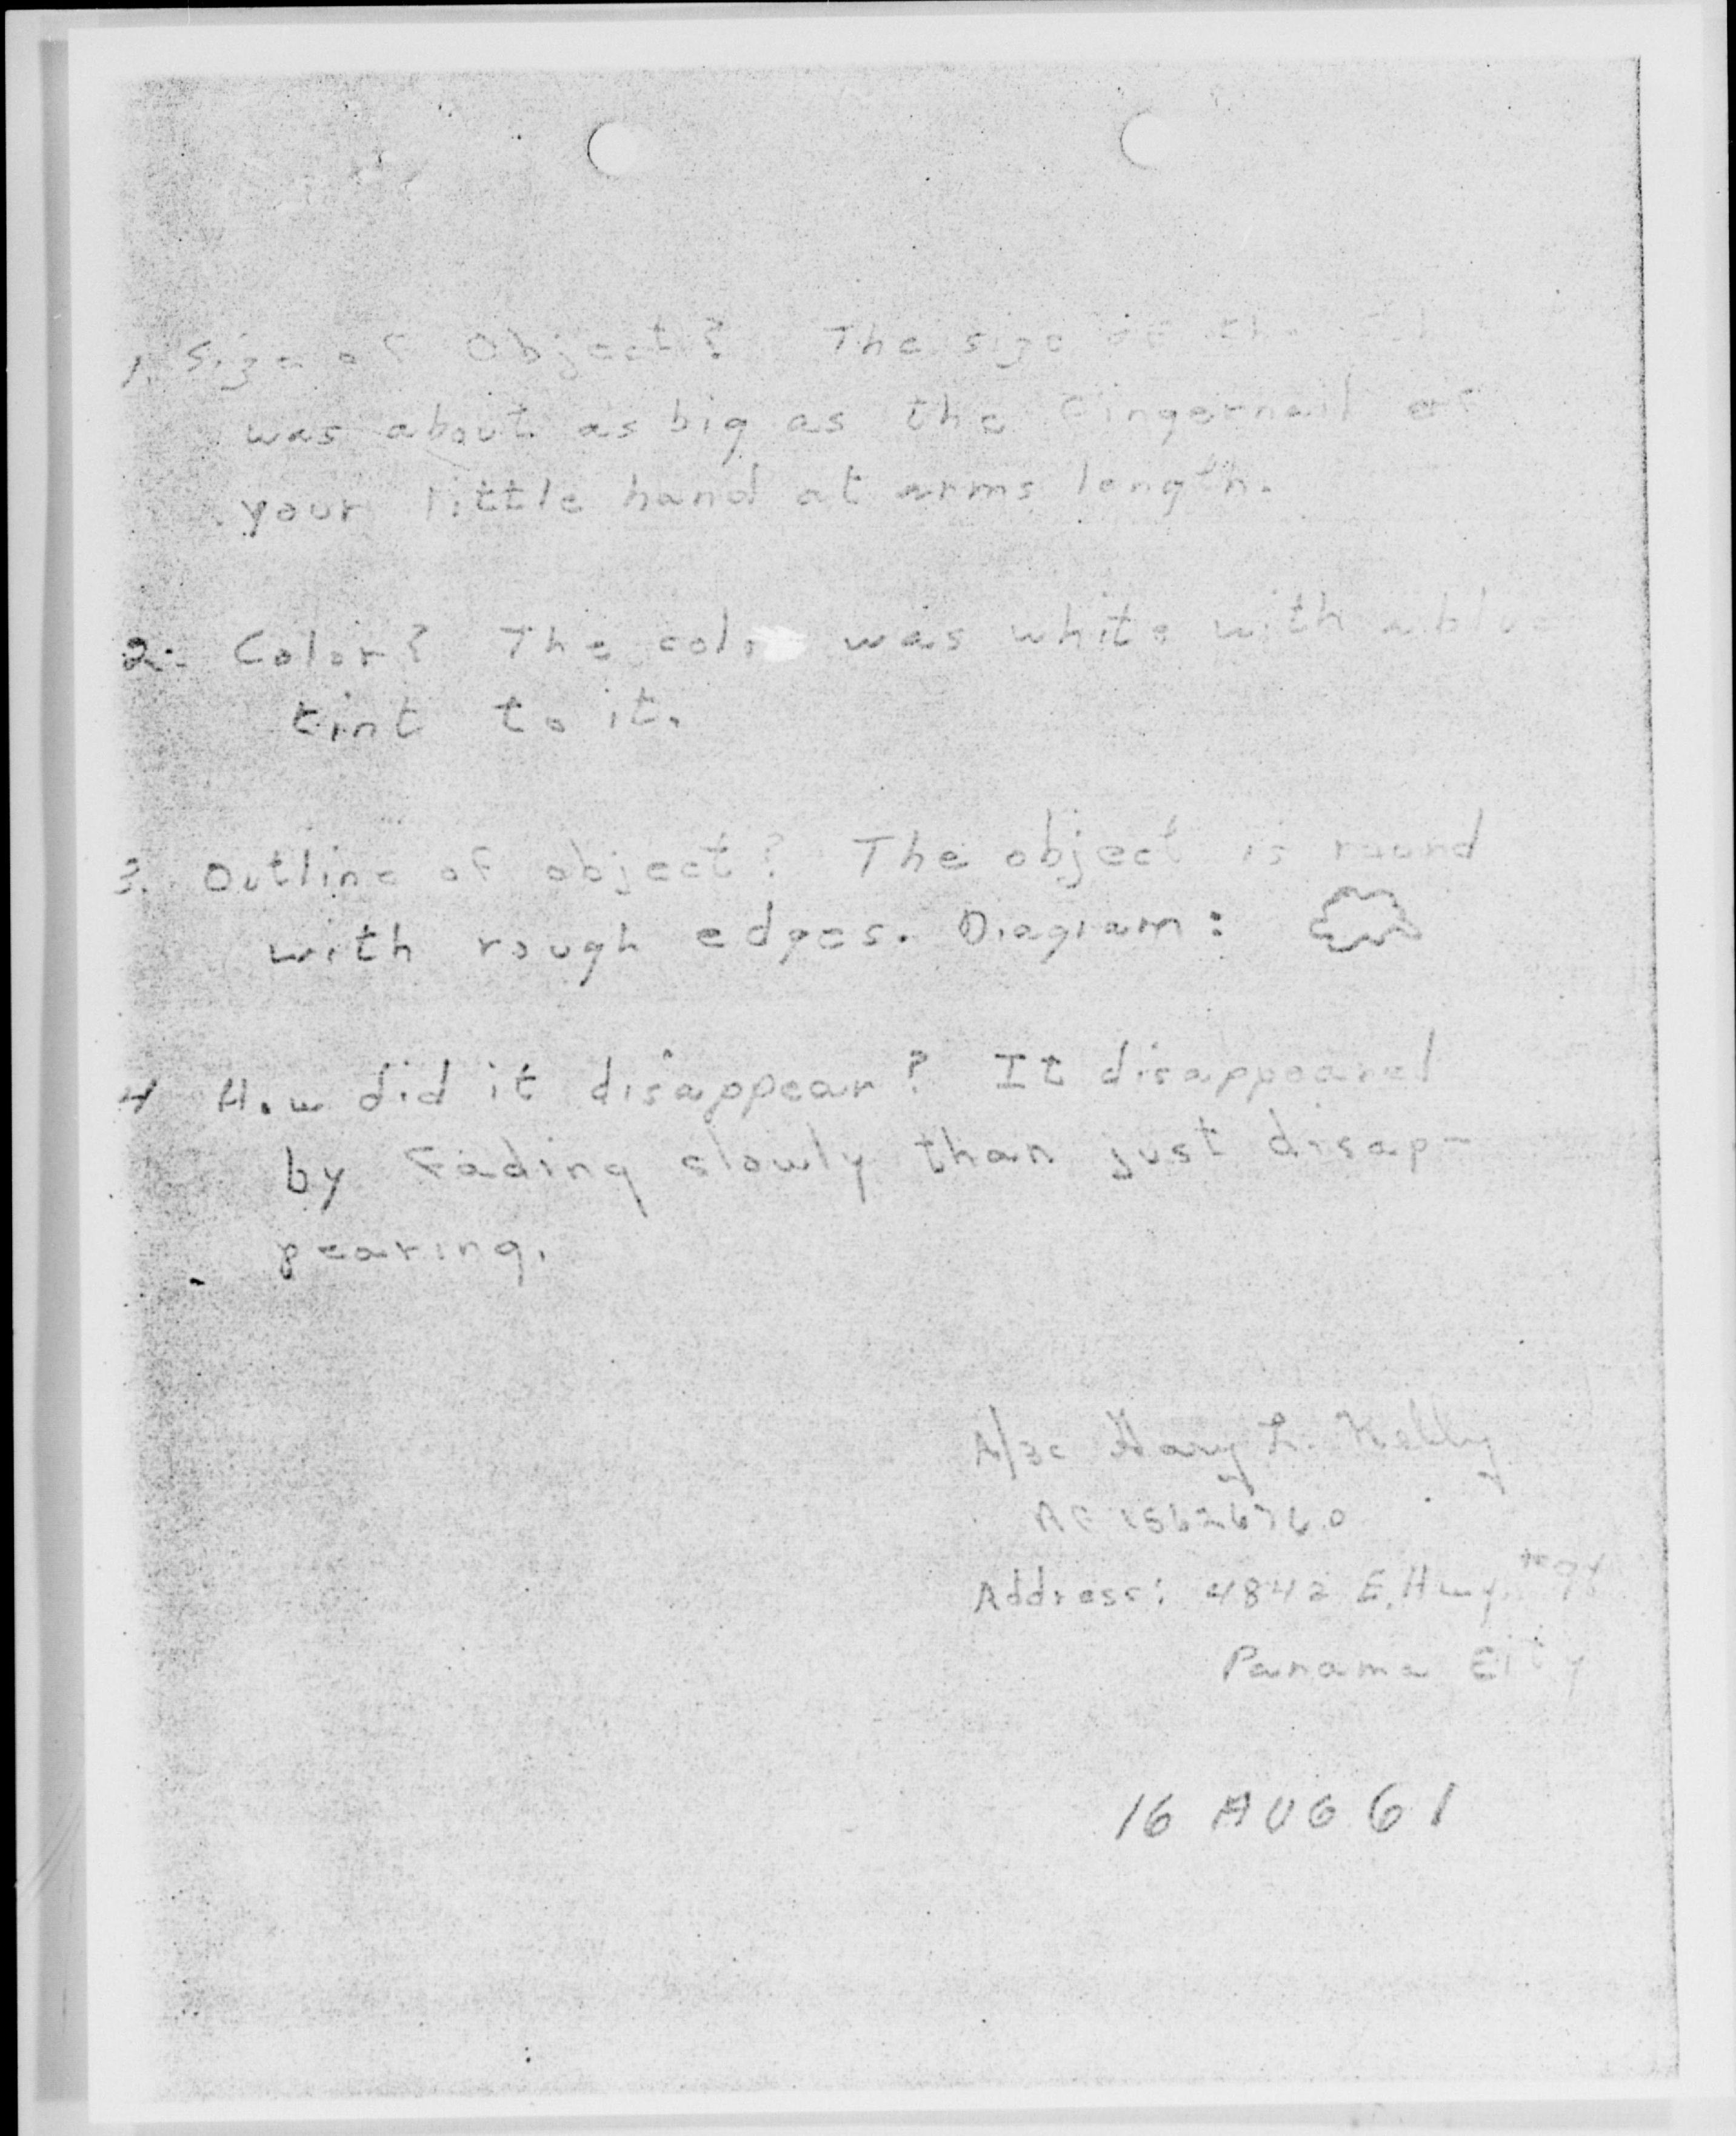 1. Size of Object? The size of the
was about as big as the fingernail of
your little hand at arms length.
2. Color? The color was white with a blue
tint to it.
3. Outline of object? The object is round
with rough edges. Diagram:
4 How did it disappear? It disappeared
by fading slowly than just disap-
pearing.
A/3c L. Kelly
AF 15626760
Address: 4842 E. Hwy.
Panama City
16 AUG 61